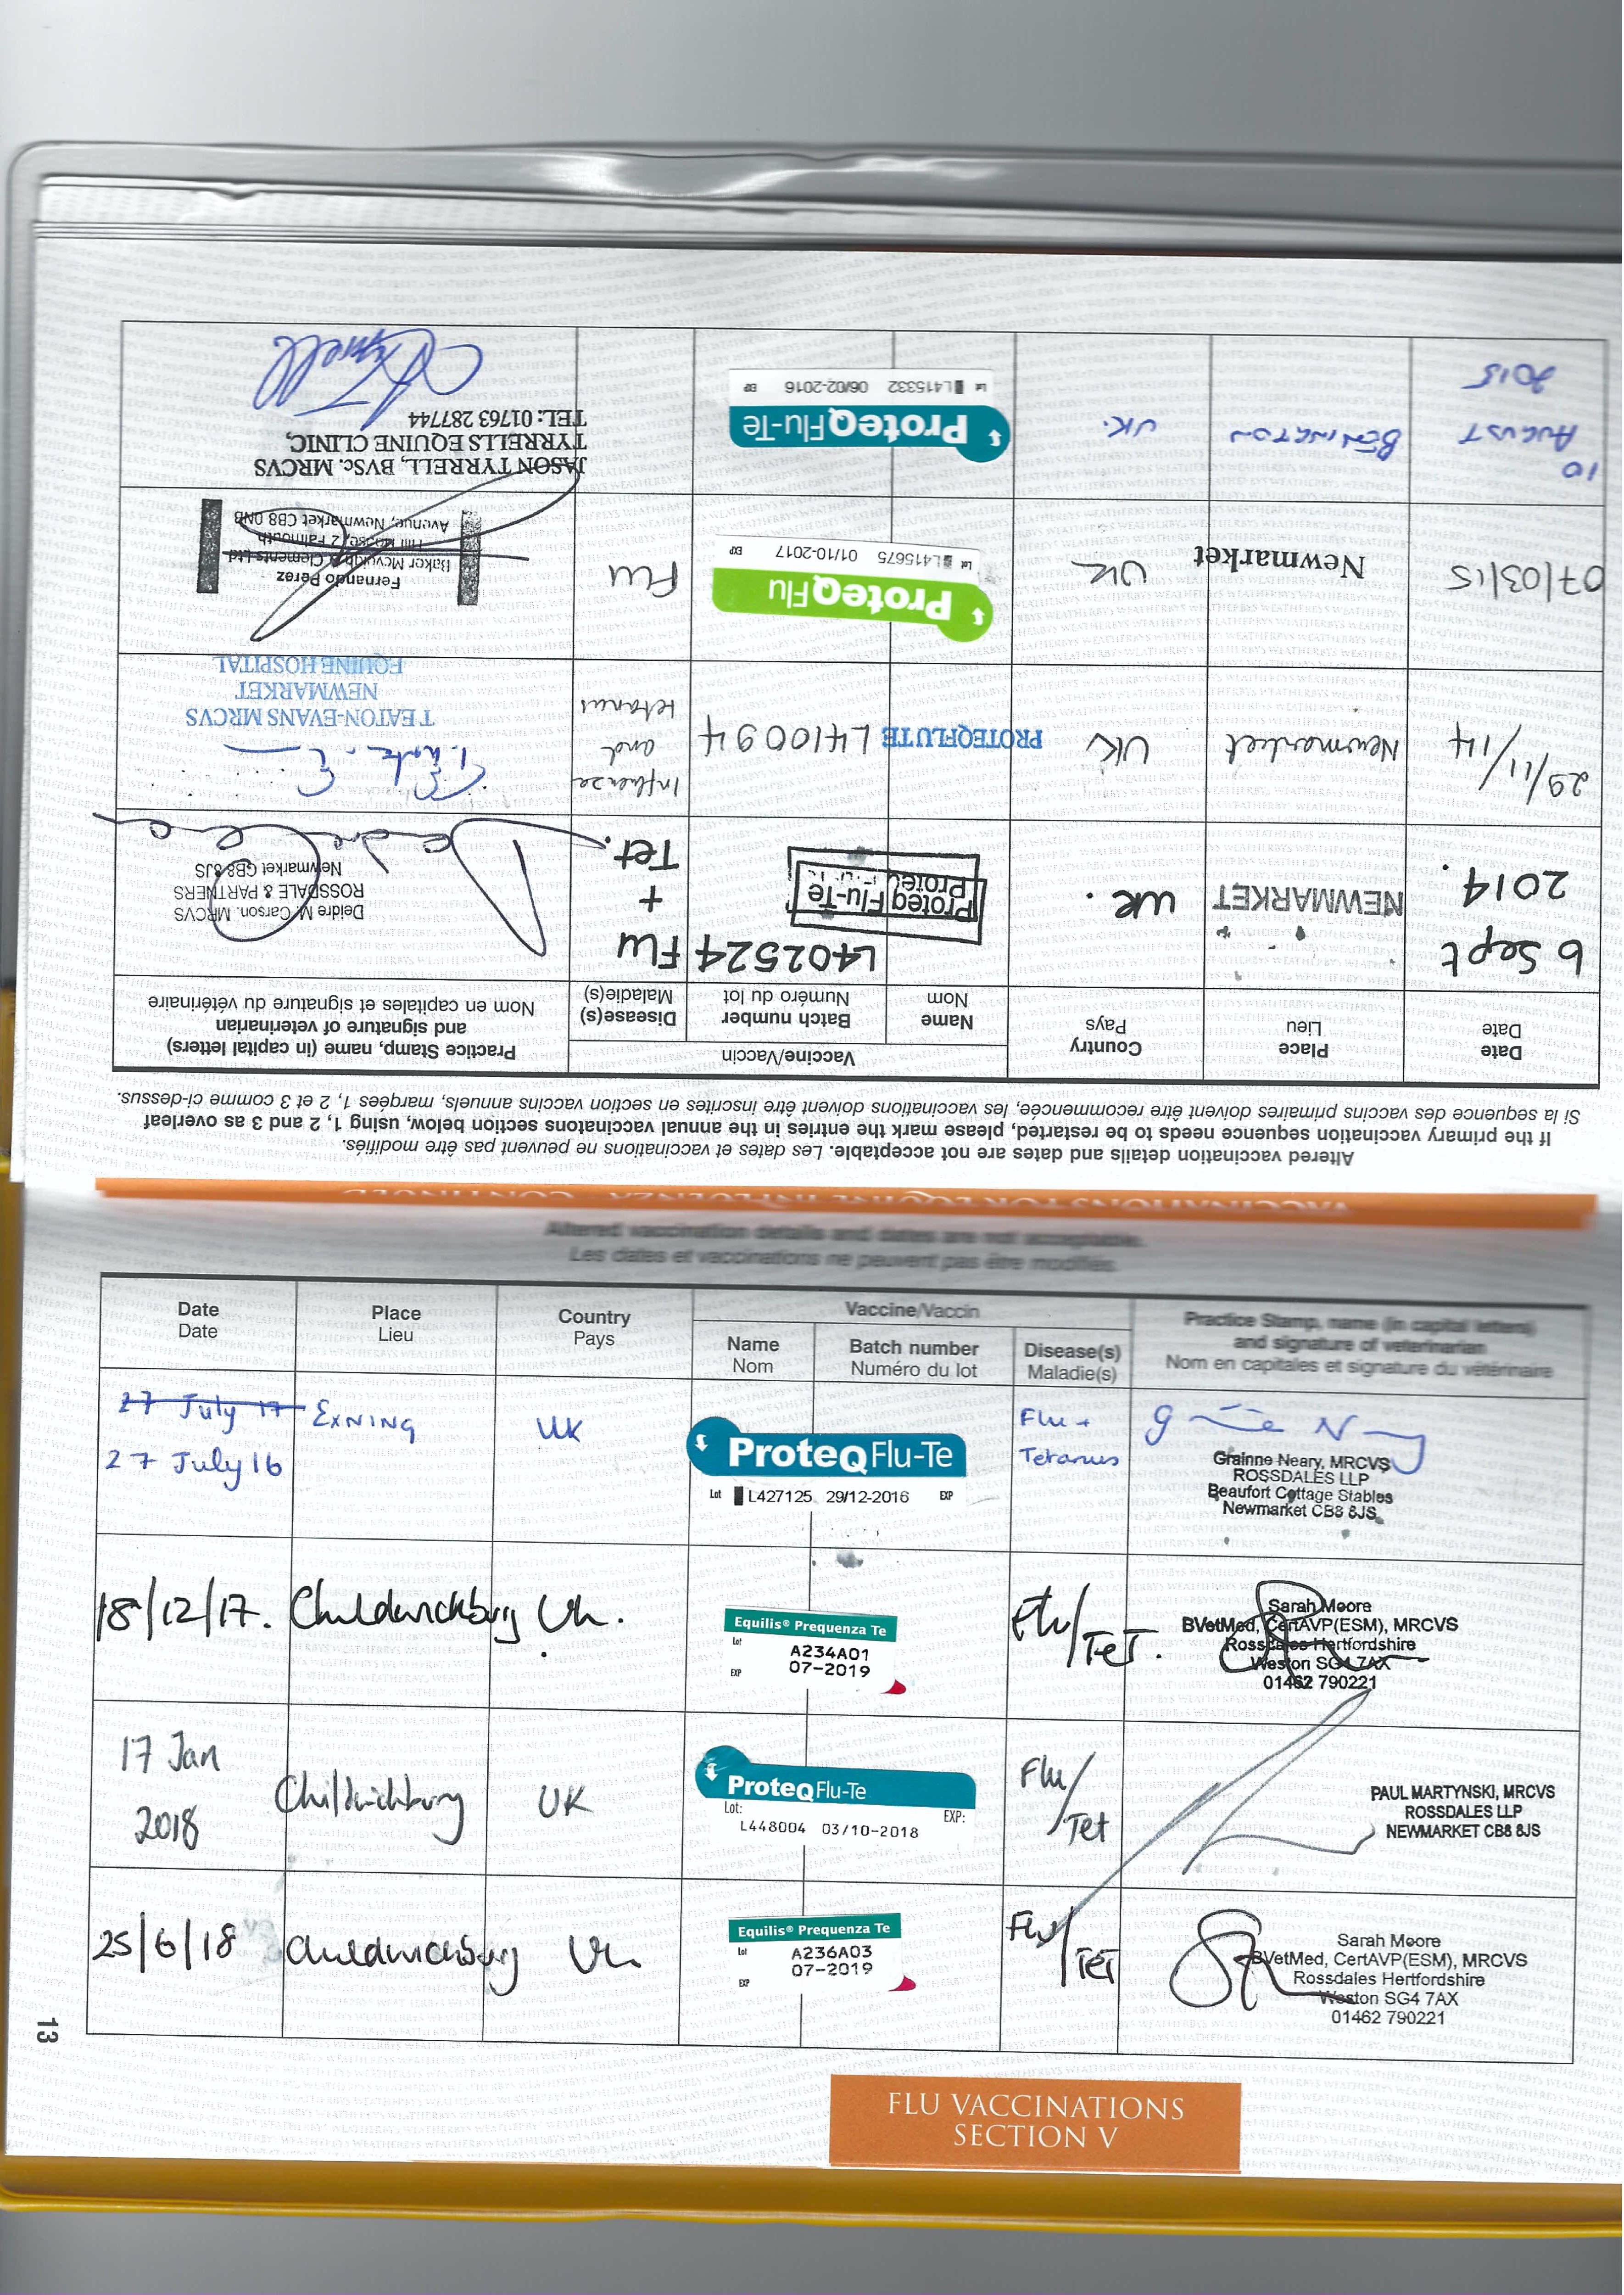 VACCINATIONS FOR EQUINE INFLUENZA CONTINUED
Altered vaccination details and dates are not acceptable. Les dates et vaccinations ne peuvent pas être modifiés.
If the primary vaccination sequence needs to be restarted, please mark the entries in the annual vaccinatons section below, using 1, 2 and 3 as overleaf
Si la sequence des vaccins primaires doivent être recommencée, les vaccinations doivent être inscrites en section vaccins annuels, marqées 1, 2 et 3 comme ci-dessus.
Date
Date
Place
Lieu
Country
Pays
Vaccine/Vaccin
Name
Nom
Batch number
Numéro du lot
Disease(s)
Maladie(s)
Practice Stamp, name (in capital letters)
and signature of veterinarian
Nom en capitales et signature du vétérinaire
6 Sept
2014.
NEWMARKET
UK.
Proteq Flu-Te
L402524
Flu
+
Tet.
Deidre M. Carson. MRCVS
ROSSDALE & PARTNERS
Newmarket CB8 8JS
29/11/14
Newmarket
UK
PROTEQFLUTE
L410094
Influenza
and
tetanus
T EATON-EVANS MRCVS
NEWMARKET
EQUINE HOSPITAL
07/03/15
Newmarket
UK
ProteqFlu
Lot L415675 01/10-2017 EXP
Flu
Fernando Perez
Baker Mcveigh & Clements Ltd
Hill House, 2 Falmouth
Avenue, Newmarket CB8 0NB
10
AUGUST
2015
BENINGTON
UK.
ProteqFlu-Te
Lot L415332 06/02-2016 EXP
JASON TYRRELL, BVSc. MRCVS
TYRRELLS EQUINE CLINIC,
TEL: 01763 287744
Altered vaccination details and dates are not acceptable.
Les dates et vaccinations ne peuvent pas être modifiés.
Date
Date
Place
Lieu
Country
Pays
Vaccine/Vaccin
Name
Nom
Batch number
Numéro du lot
Disease(s)
Maladie(s)
Practice Stamp, name (in capital letters)
and signature of veterinarian
Nom en capitales et signature du vétérinaire
27 July 17
27 July 16
EXNING
UK
ProteqFlu-Te
Lot L427125 29/12-2016 EXP
Flu +
Tetanus
Grainne Neary, MRCVS
ROSSDALES LLP
Beaufort Cottage Stables
Newmarket CB8 8JS
18/12/17.
Childwickbury
Uk.
Equilis® Prequenza Te
Lot A234A01
EXP 07-2019
Flu/
Tet.
Sarah Moore
BVetMed, CertAVP(ESM), MRCVS
Rossdales Hertfordshire
Weston SG4 7AX
01462 790221
17 Jan
2018
Childwickbury
UK
ProteqFlu-Te
Lot: EXP:
L448004 03/10-2018
Flu/
Tet
PAUL MARTYNSKI, MRCVS
ROSSDALES LLP
NEWMARKET CB8 8JS
25/6/18
Childwickbury
Uk
Equilis® Prequenza Te
Lot A236A03
EXP 07-2019
Flu/
TET
Sarah Moore
BVetMed, CertAVP(ESM), MRCVS
Rossdales Hertfordshire
Weston SG4 7AX
01462 790221
13
FLU VACCINATIONS
SECTION V